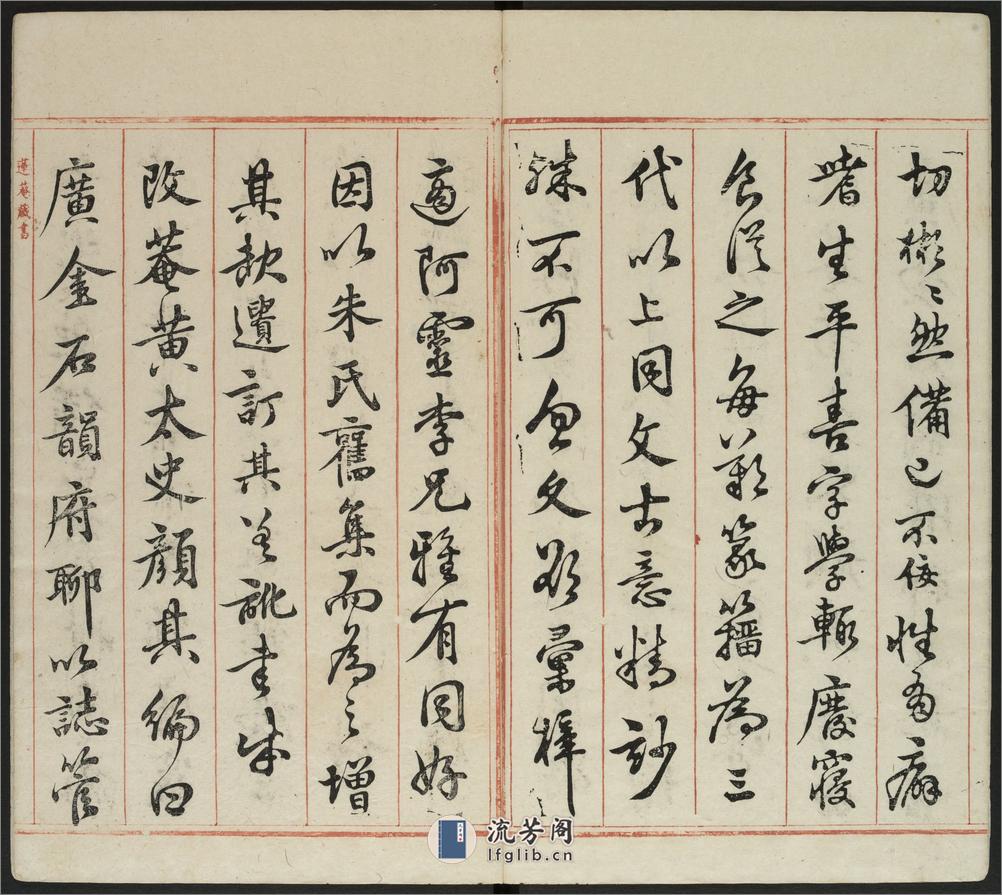 切彬〻然備已不佞性有癖
嗜生平喜字學輒廢寢
食從之每以難篆籀為三
代以上同文古意精妙
殊不可
文
彙梓
適阿靈李兄雅有同好
因以朱氏舊集而為之增
其缺遺訂其差訛書成
改菴黃太史顏其編曰
廣金石韻府聊以誌管
蓮菴藏書
流芳阁
lfglib.cn